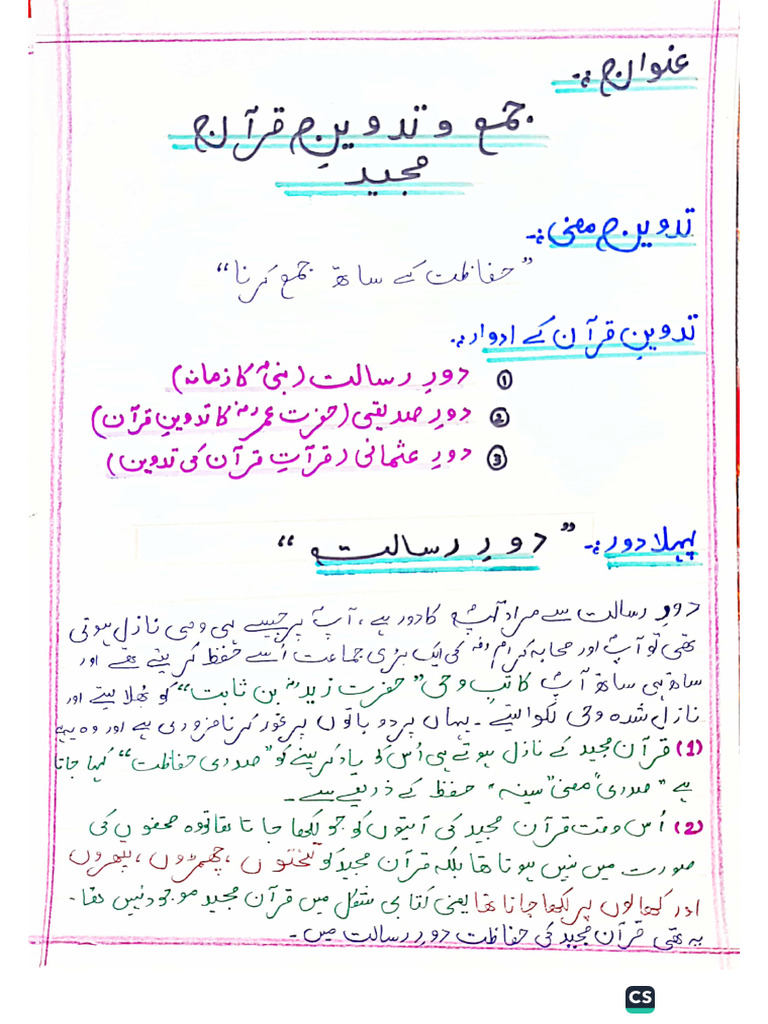 عنوان :-
جمع و تدوینِ قرآن
مجید
تدوین معنی :-
"حفاظت کے ساتھ جمع کرنا"
تدوینِ قرآن کے ادوار :-
① دورِ رسالت (نبیؐ کا زمانہ)
② دورِ صدیقی (حضرت عمرؓ کا تدوینِ قرآن)
③ دورِ عثمانی (قرآتِ قرآن کی تدوین)
پہلا دور :- "دورِ رسالت"
دورِ رسالت سے مراد آپؐ کا دور ہے، آپؐ پر جیسے ہی وحی نازل ہوتی
تھی تو آپؐ اور صحابہ کرامؓ کی ایک بڑی جماعت اُسے حفظ کر لیتے تھے اور
ساتھ ہی ساتھ آپؐ کاتبِ وحی "حضرت زیدؓ بن ثابت" کو بُلا لیتے اور
نازل شدہ وحی لکھوا لیتے۔ یہاں پر دو باتوں پر غور کرنا ضروری ہے اور وہ یہ ہے
(1) قرآن مجید کے نازل ہوتے ہی اُس کو یاد کر لینے کو "صدری حفاظت" کہا جاتا
ہے "صدری" معنی "سینہ" حفظ کے ذریعے سے۔
(2) اُس وقت قرآن مجید کی آیتوں کو جو لکھا جاتا تھا تو وہ صحفوں کی
صورت میں نہیں ہوتا تھا بلکہ قرآن مجید کو تختوں، چھمڑوں، پتھروں
اور کھالوں پر لکھا جاتا تھا یعنی کتابی شکل میں قرآن مجید موجود نہیں تھا۔
یہ تھی قرآن مجید کی حفاظت دورِ رسالت میں۔
CS